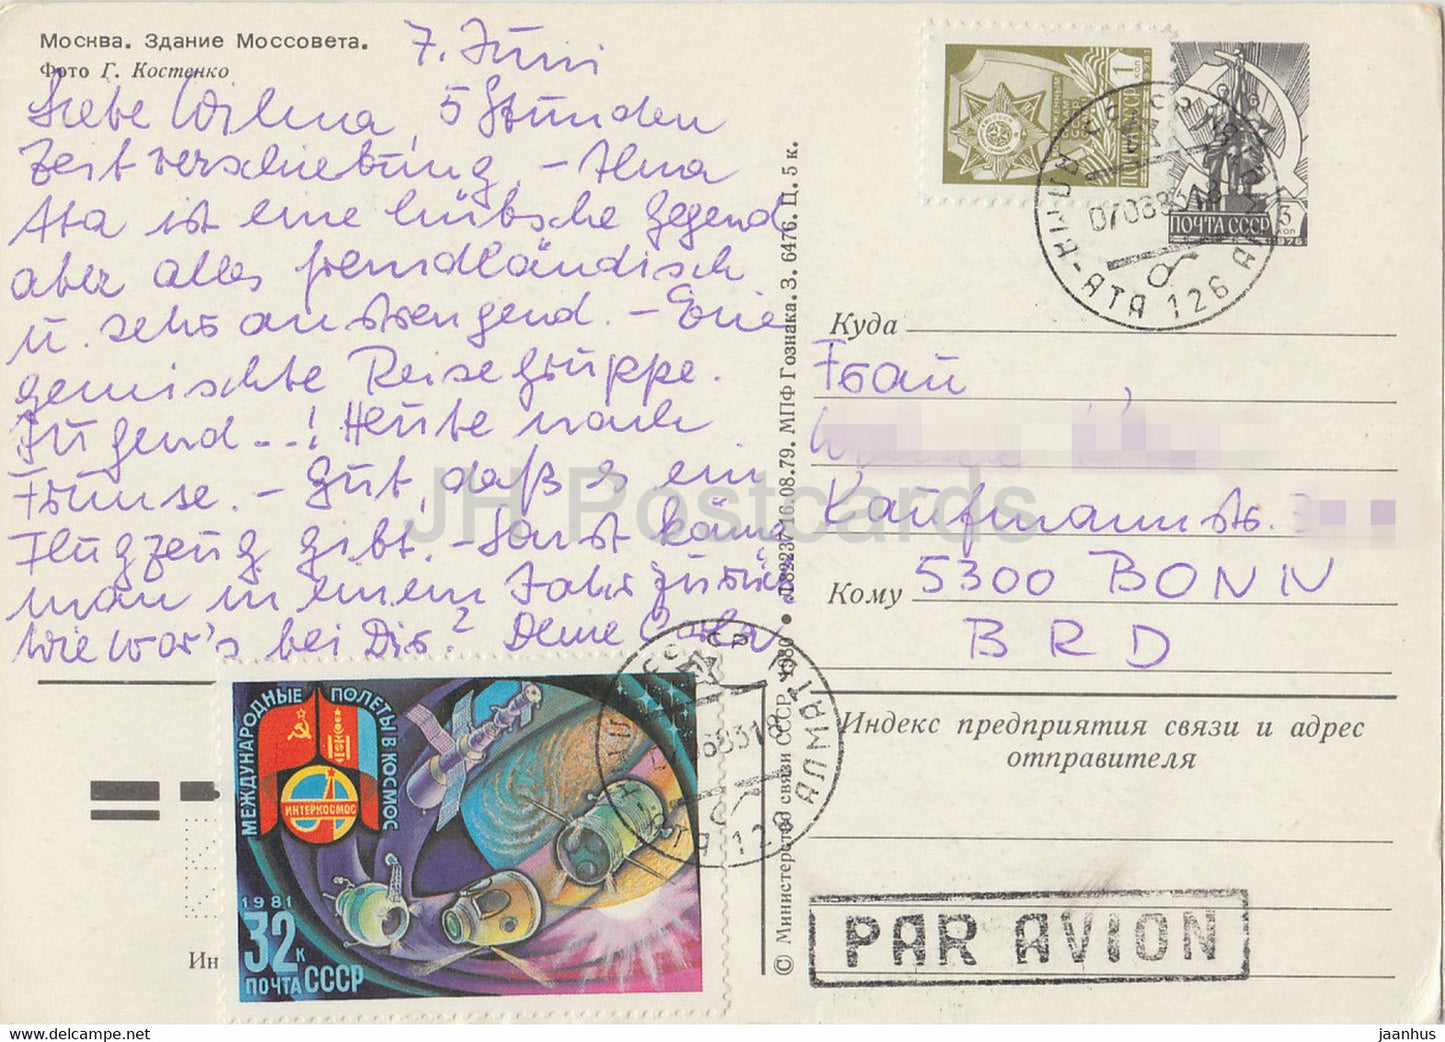 Москва. Здание Моссовета.
Фото Г. Костенко
7. Juni
Liebe Wilma, 5 Stunden
Zeitverschiebung, – Alma
Ata ist eine hübsche Gegend
aber alles fremdländisch
u. sehr anstrengend. – Eine
gemischte Reisegruppe.
Jugend --! Heute nach
Frunse. – Gut, daß es ein
Flugzeug gibt. – Sonst käme
man in einem Jahr zurück
Wie war's bei Dir? Deine Carla
МЕЖДУНАРОДНЫЕ ПОЛЕТЫ В КОСМОС
ИНТЕРКОСМОС
1981
32 к
ПОЧТА СССР
Ин
© Министерство связи СССР, 1980 • 182237 16.08.79. МПФ Гознака. З. 6476. Ц. 5 к.
1 КОП
ПОЧТА СССР
ПОЧТА СССР 3 КОП
1976
АТА 126
Куда
Frau
Kaufmannstr.
Кому 5300 BONN
BRD
Индекс предприятия связи и адрес
отправителя
PAR AVION
JH Postcards
jaanhus